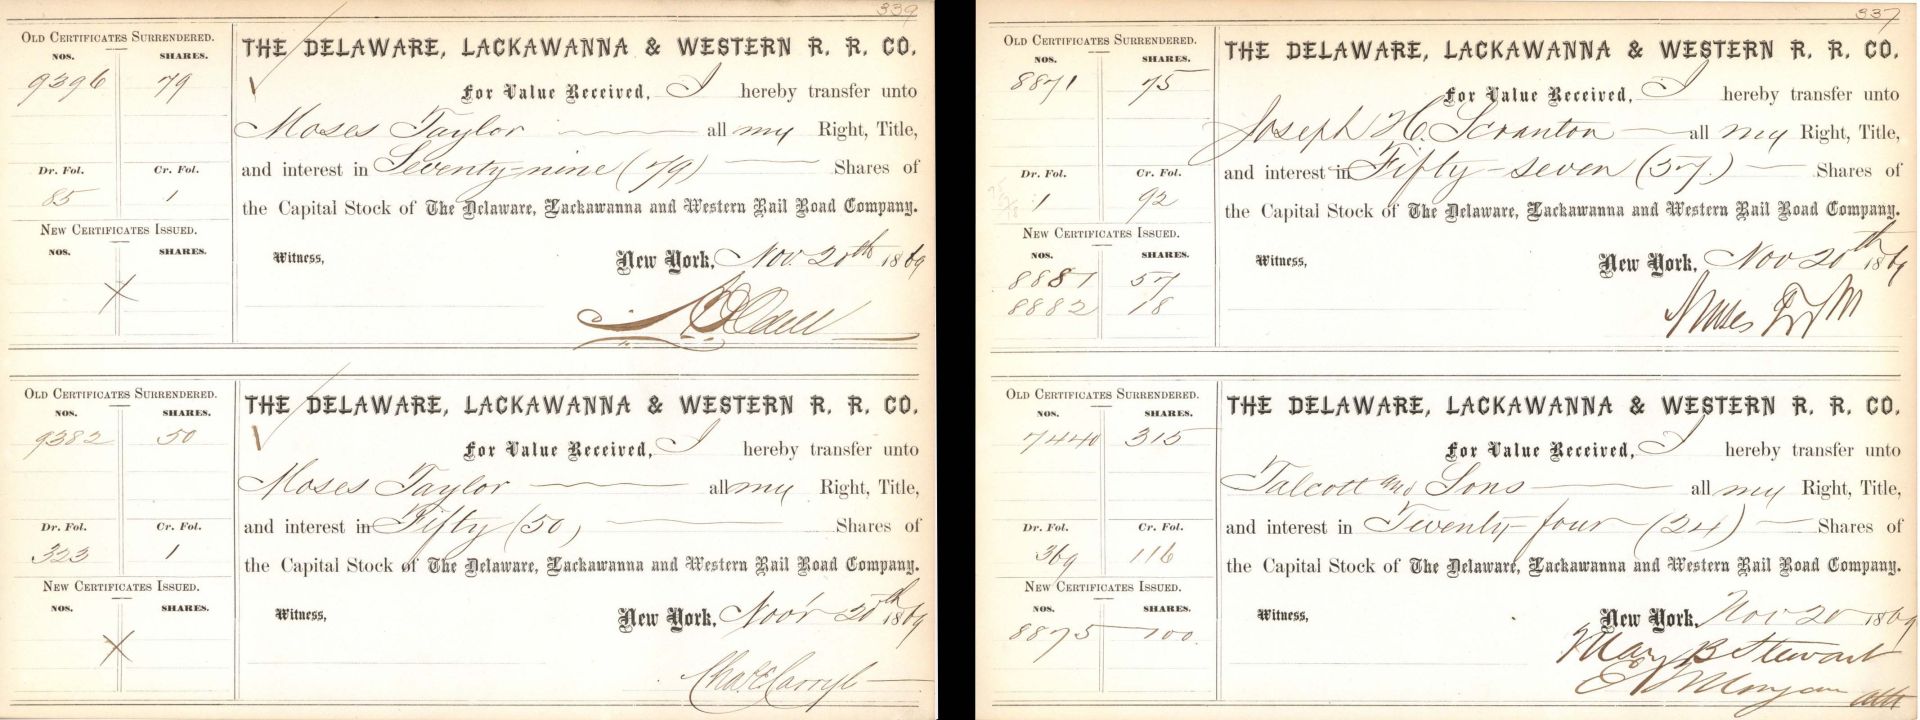 339
OLD CERTIFICATES SURRENDERED.
NOS. SHARES.
9396 79
Dr. Fol. Cr. Fol.
85 1
NEW CERTIFICATES ISSUED.
NOS. SHARES.
THE DELAWARE, LACKAWANNA & WESTERN R. R. CO.
For Value Received, I hereby transfer unto
Moses Taylor all my Right, Title,
and interest in Seventy-nine (79) Shares of
the Capital Stock of The Delaware, Lackawanna and Western Rail Road Company.
Witness, New York, Nov. 20th 1869
OLD CERTIFICATES SURRENDERED.
NOS. SHARES.
9382 50
Dr. Fol. Cr. Fol.
323 1
NEW CERTIFICATES ISSUED.
NOS. SHARES.
THE DELAWARE, LACKAWANNA & WESTERN R. R. CO.
For Value Received, I hereby transfer unto
Moses Taylor all my Right, Title,
and interest in Fifty (50) Shares of
the Capital Stock of The Delaware, Lackawanna and Western Rail Road Company.
Witness, New York, Nov'r 20th 1869
Chas. E. Carryl
337
OLD CERTIFICATES SURRENDERED.
NOS. SHARES.
8871 75
Dr. Fol. Cr. Fol.
1 92
NEW CERTIFICATES ISSUED.
NOS. SHARES.
8881 57
8882 18
THE DELAWARE, LACKAWANNA & WESTERN R. R. CO.
For Value Received, I hereby transfer unto
Joseph H. Scranton all my Right, Title,
and interest in Fifty-seven (57.) Shares of
the Capital Stock of The Delaware, Lackawanna and Western Rail Road Company.
Witness, New York, Nov 20th 1869
Moses Taylor
OLD CERTIFICATES SURRENDERED.
NOS. SHARES.
7440 315
Dr. Fol. Cr. Fol.
369 116
NEW CERTIFICATES ISSUED.
NOS. SHARES.
8875 100
THE DELAWARE, LACKAWANNA & WESTERN R. R. CO.
For Value Received, I hereby transfer unto
Talcott and Sons all my Right, Title,
and interest in Twenty-four (24) Shares of
the Capital Stock of The Delaware, Lackawanna and Western Rail Road Company.
Witness, New York, Nov 20 1869
Mary B Stewart
E D Morgan atty